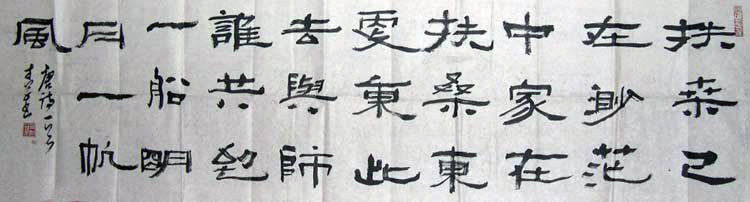 扶桒已
在渺茫
中家在
扶桑東
更東此
去與師
誰共到
一船明
月一帆
風
唐诗一首